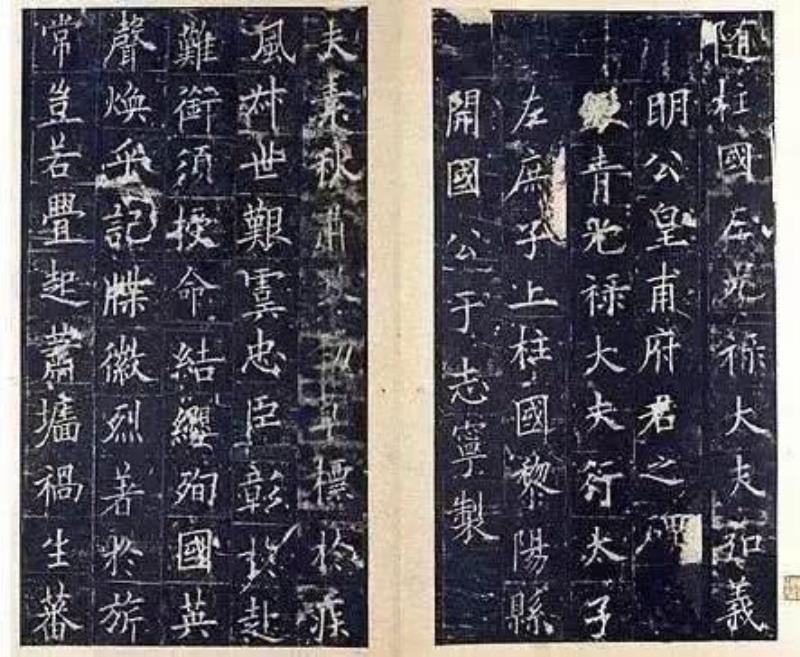 随柱國左光禄大夫弘義
明公皇甫府君之碑
銀青光禄大夫行太子
左庶子上柱國黎陽縣
開國公于志寧製
夫素秋肅
標於疾
風叶世艱虞忠臣彰於赴
難銜須授命結纓殉國英
聲煥乎記牒徽烈著於旂
常豈若疊起蕭墻禍生蕃